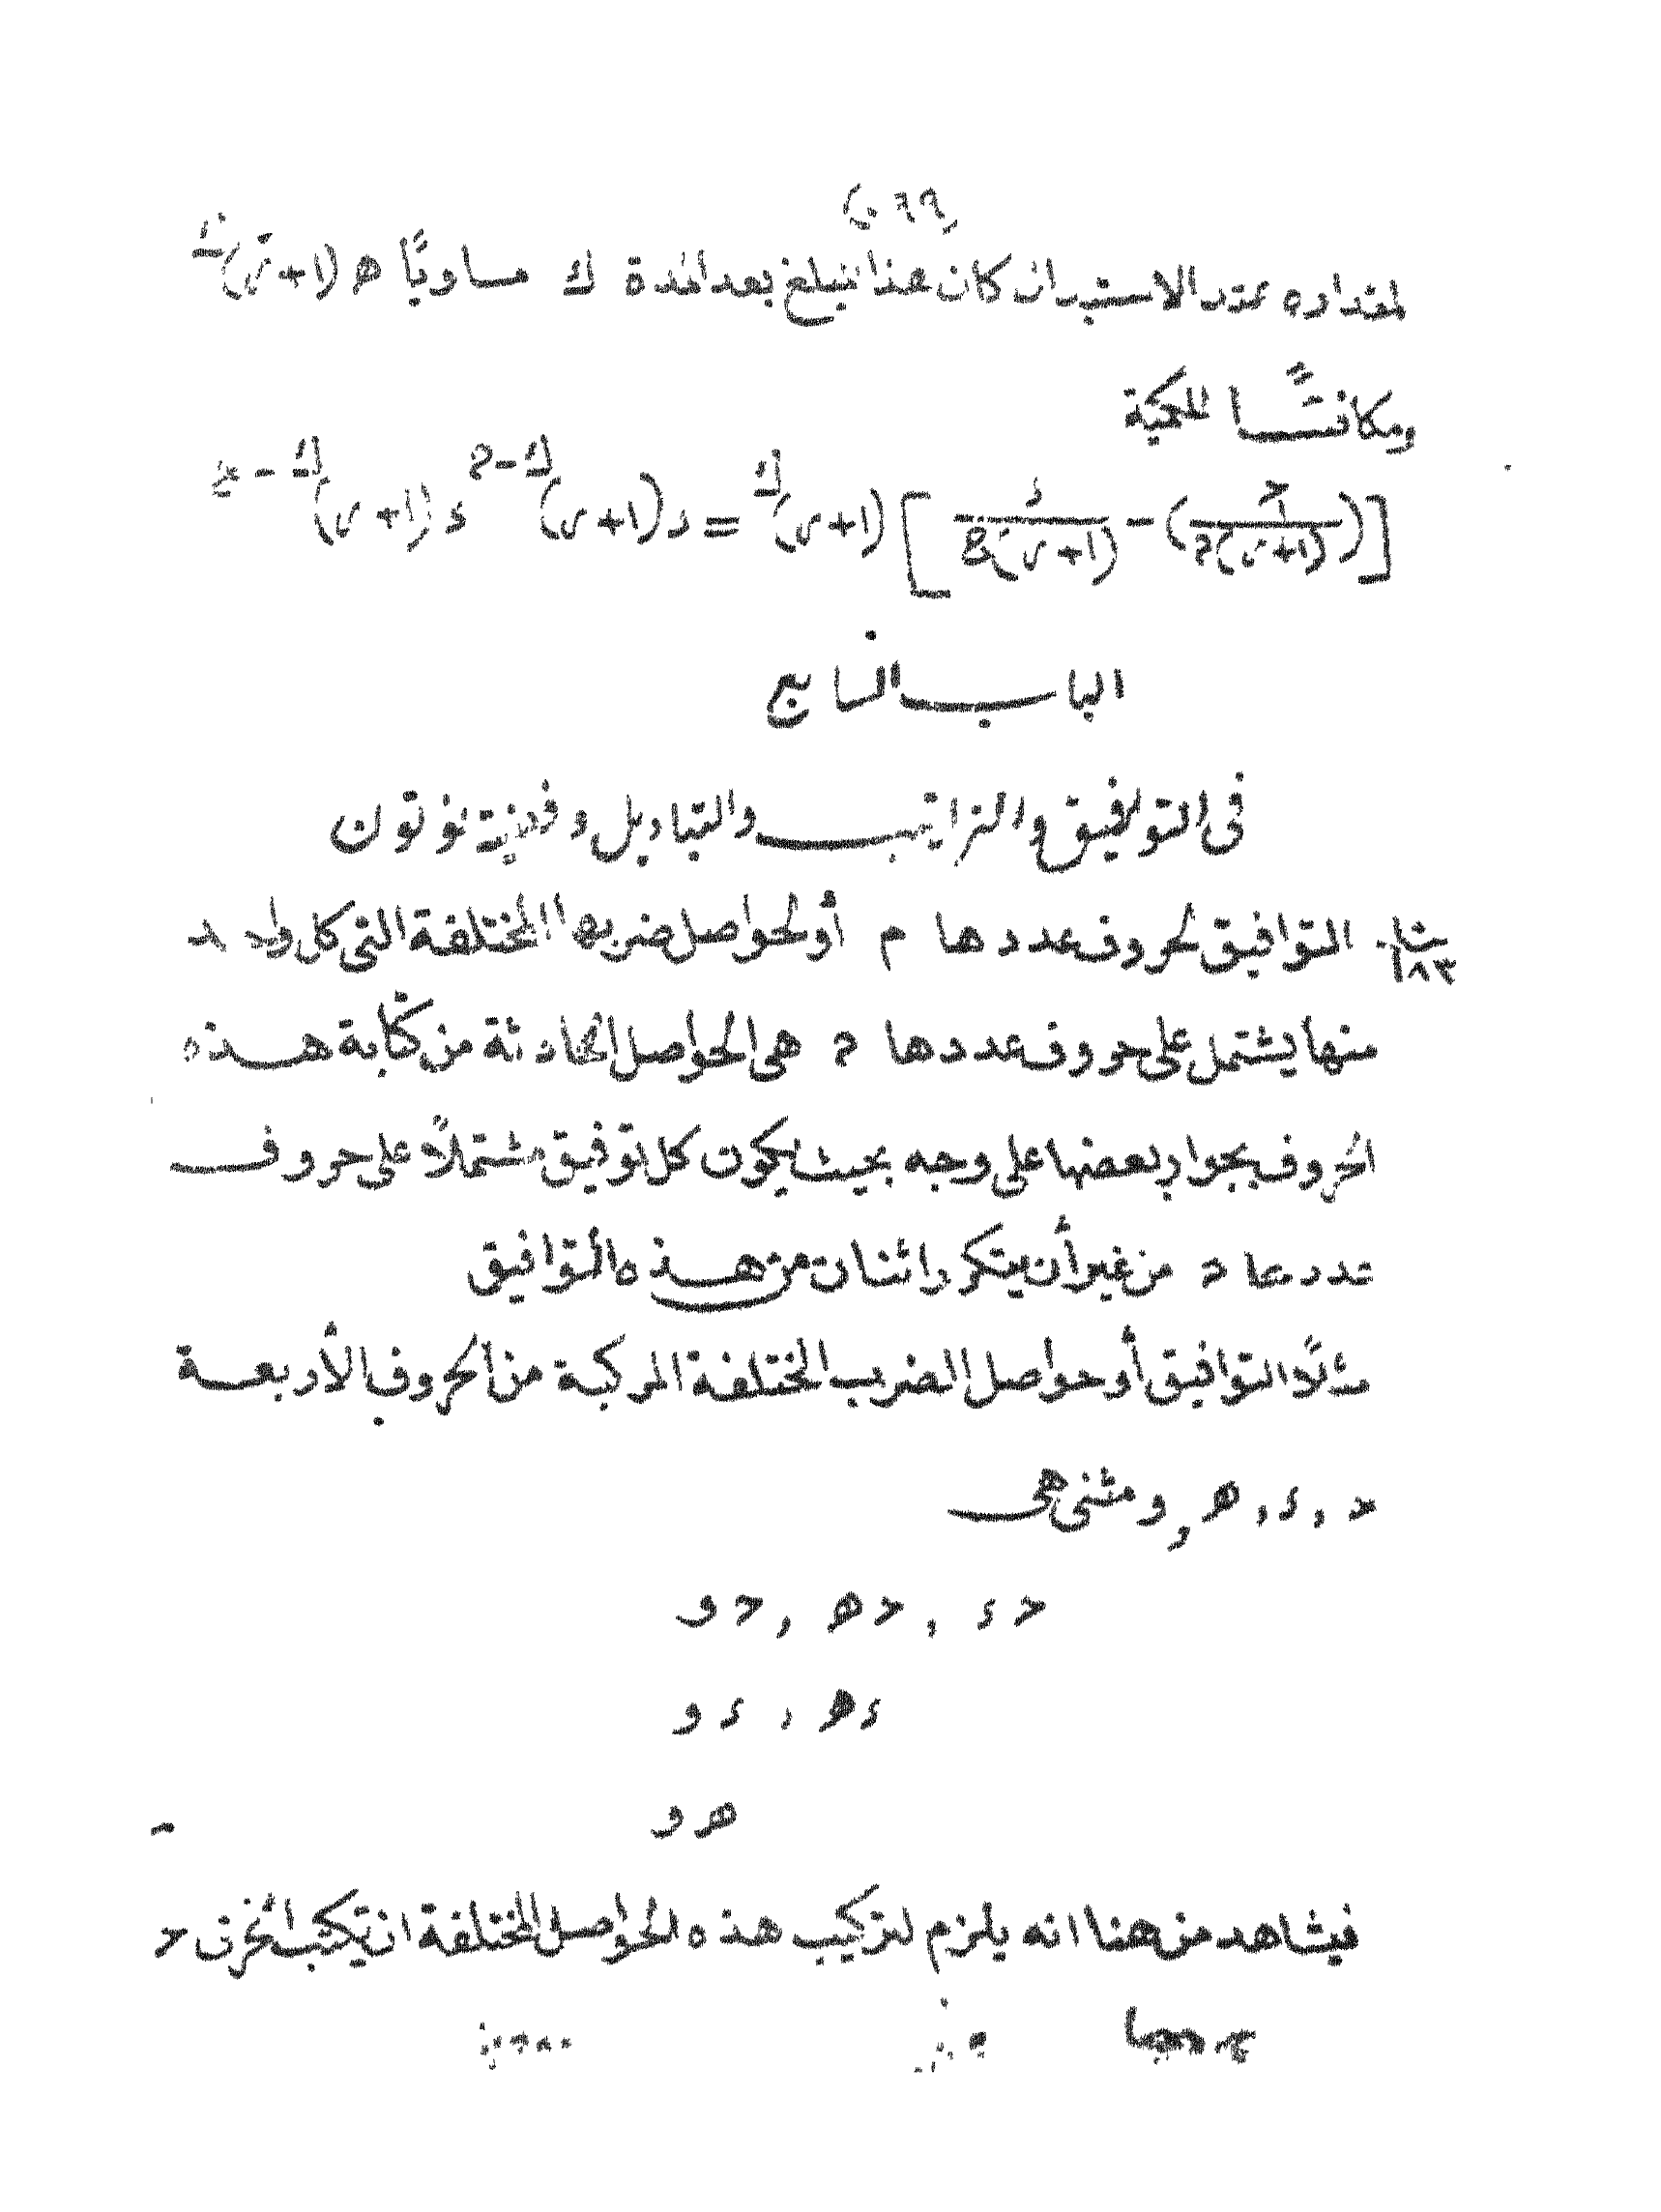 (٢٦٩)
لمقداره عند الاستبدال كان هذا المبلغ بعد المدة ك مساويًا ھ (١+ر)^ك
ومكافئًا للكمية
[(ح/(١+ر)^م) - د/(١+ر)^ع] (١+ر)^ك = د(١+ر)^(ك-م) د(١+ر)^(ك-ع)
الباب السابع
فى التوافيق والتراتيب والتباديل وفرضية نوتون
بند ١٨٣ التوافيق لحروف عددها م أو لحواصل ضربها المختلفة التى كل واحد
منها يشتمل على حروف عددها م هى الحواصل الحادثة من كتابة هذه
الحروف بجوار بعضها على وجه بحيث يكون كل توفيق مشتملاً على حروف
عددها م من غير أن يتكرر اثنان من هذه التوافيق
مثلاً التوافيق أو حواصل الضرب المختلفة المركبة من الحروف الأربعة
ح , د , ھ , و مثنى هى
ح د , ح ھ , ح و
د ھ , د و
ھ و
فيشاهد من هنا انه يلزم لتركيب هذه الحواصل المختلفة ان يكتب الحرف ح